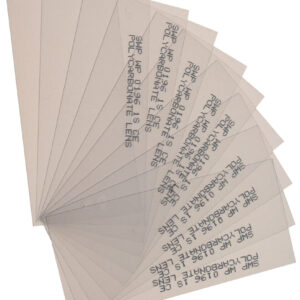 SWP WP 0196 1S CE
POLYCARBONATE LENS
SWP WP 0196 1S CE
POLYCARBONATE LENS
SWP WP 0196 1S CE
POLYCARBONATE LENS
SWP WP 0196 1S CE
POLYCARBONATE LENS
SWP WP 0196 1S CE
POLYCARBONATE LENS
SWP WP 0196 1S CE
POLYCARBONATE LENS
SWP WP 0196 1S CE
POLYCARBONATE LENS
SWP WP 0196 1S CE
POLYCARBONATE LENS